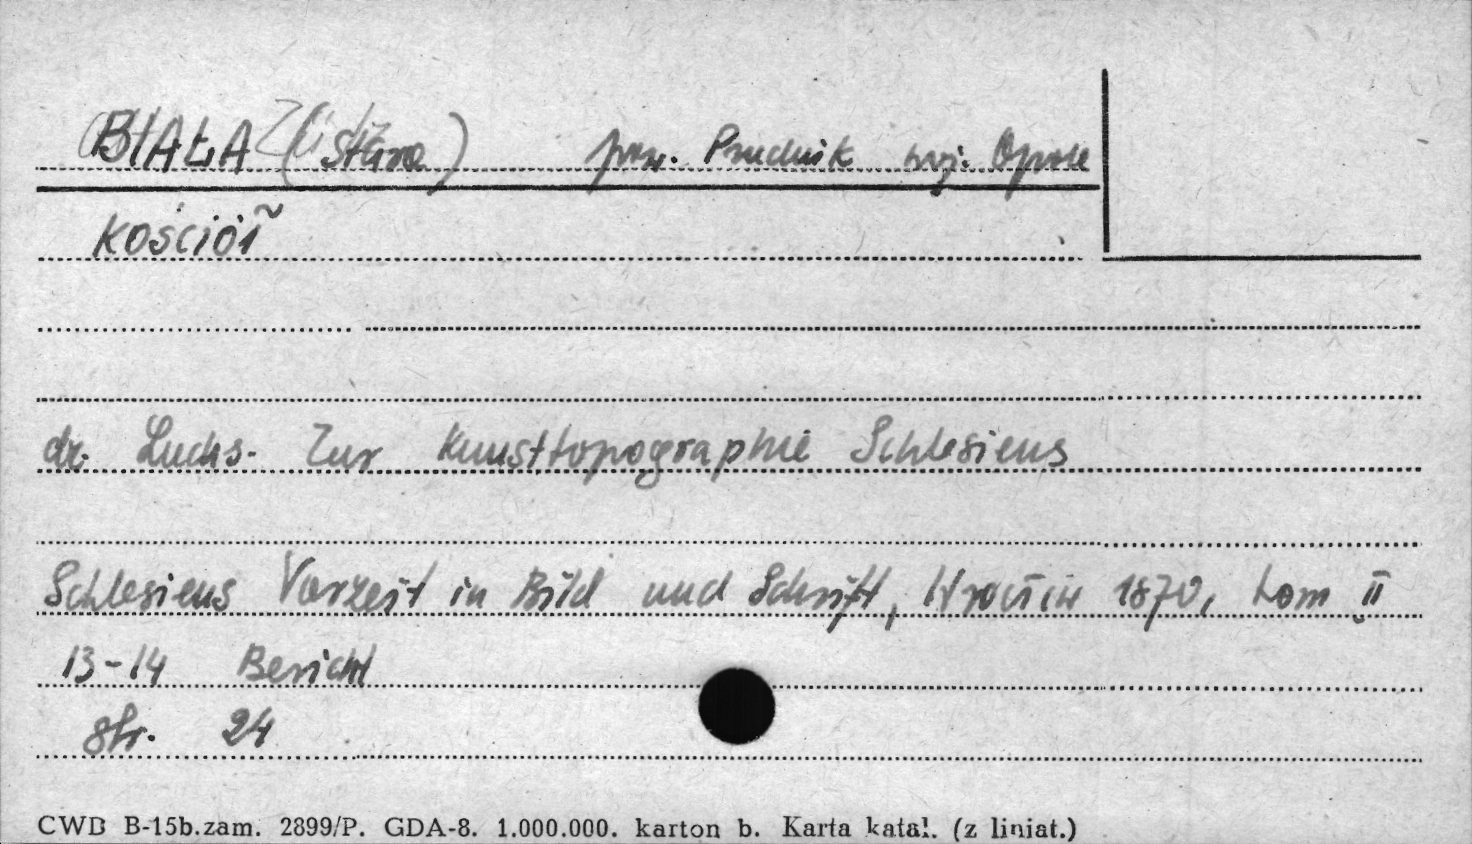 BIAŁA (Stara) pow. Prudnik woj. Opole
kościół
dr. Luchs - Zur Kunsttopographie Schlesiens
Schlesiens Vorzeit in Bild und Schrift, Wrocław 1870, tom II
13-14 Bericht
str. 24
CWD B-15b.zam. 2899/P. GDA-8. 1.000.000. karton b. Karta katal. (z liniat.)